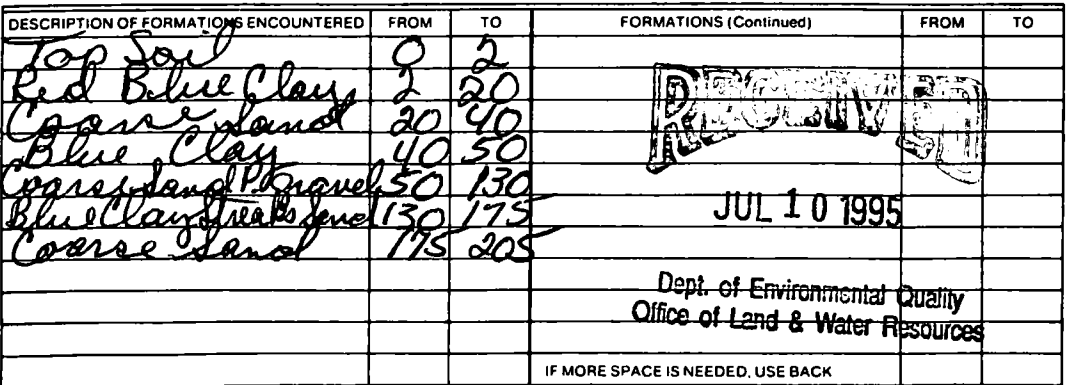 DESCRIPTION OF FORMATIONS ENCOUNTERED FROM TO FORMATIONS (Continued) FROM TO
Top Soil 0 2
Red Blue Clay 2 20
Coarse Sand 20 40
Blue Clay 40 50
Coarse Sand P. Gravel 50 130
Blue Clay Streaks Sand 130 175
Coarse Sand 175 205
RECEIVED
JUL 10 1995
Dept. of Environmental Quality
Office of Land & Water Resources
IF MORE SPACE IS NEEDED, USE BACK